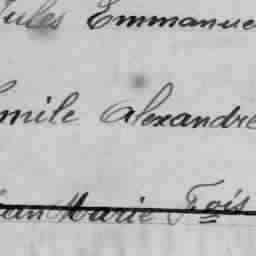 Jules Emmanue
mile Alexandre
ean Marie Fois